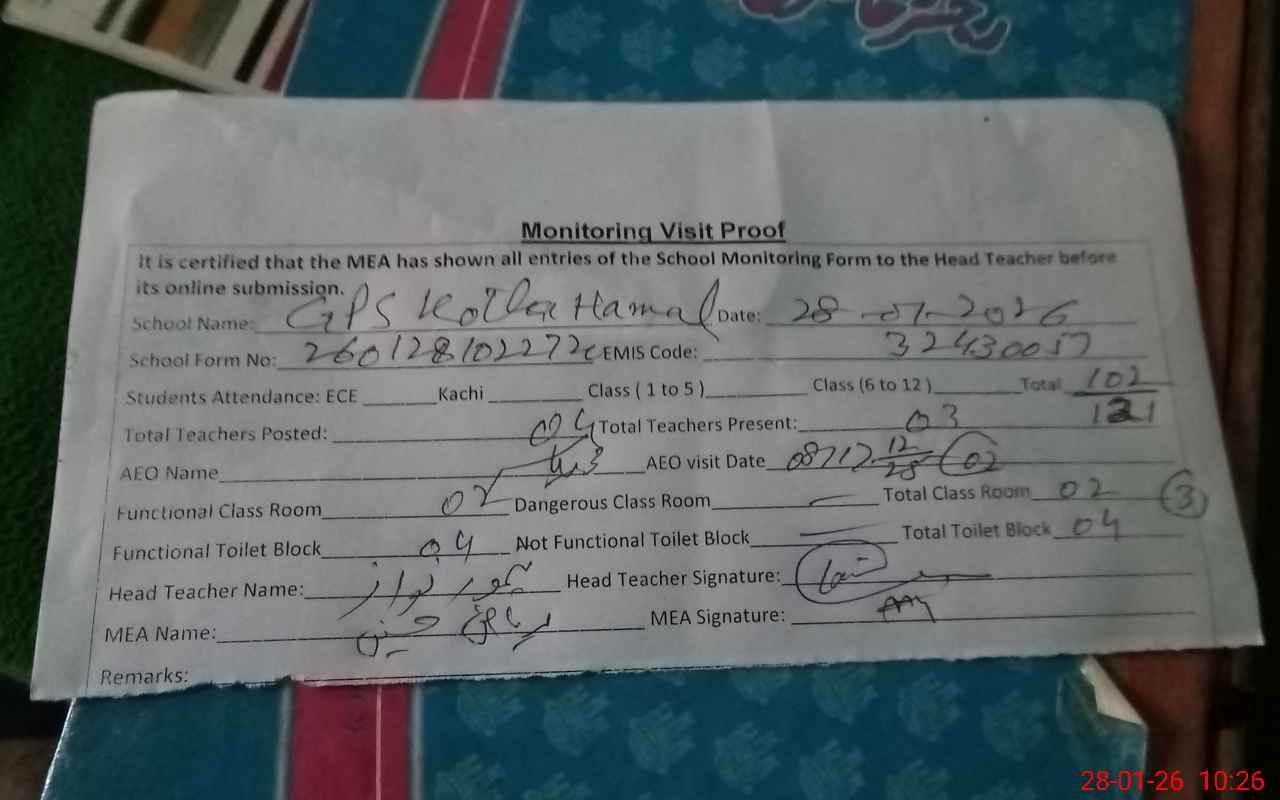 رجسٹر
Monitoring Visit Proof
It is certified that the MEA has shown all entries of the School Monitoring Form to the Head Teacher before
its online submission.
School Name: GPS Kotla Hamal Date: 28-01-2026
School Form No: 260128102272 EMIS Code: 32430057
Students Attendance: ECE Kachi Class ( 1 to 5 ) Class (6 to 12 ) Total 102
121
Total Teachers Posted: 04 Total Teachers Present: 03
AEO Name AEO visit Date 12 02
28
Functional Class Room 02 Dangerous Class Room — Total Class Room 02 3
Functional Toilet Block 04 Not Functional Toilet Block — Total Toilet Block 04
Head Teacher Name: نواز Head Teacher Signature:
MEA Name: حسین MEA Signature:
Remarks:
28-01-26 10:26